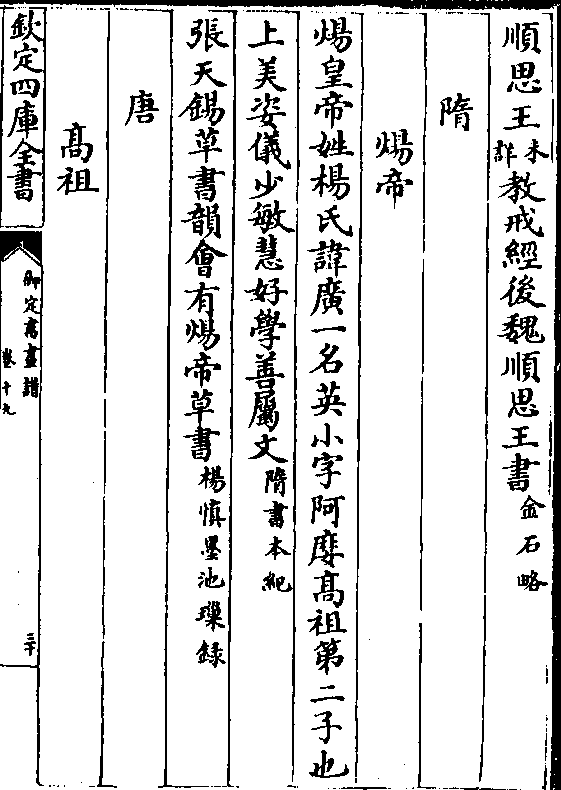 順思王未詳教戒經後魏順思王書金石略
隋
煬帝
煬皇帝姓楊氏諱廣一名英小字阿㜷髙祖第二子也
上美姿儀少敏慧好學善屬文隋書本紀
張天錫草書韻會有煬帝草書楊慎墨池璅錄
唐
髙祖
欽定四庫全書
御定書畫譜
卷十九
三十